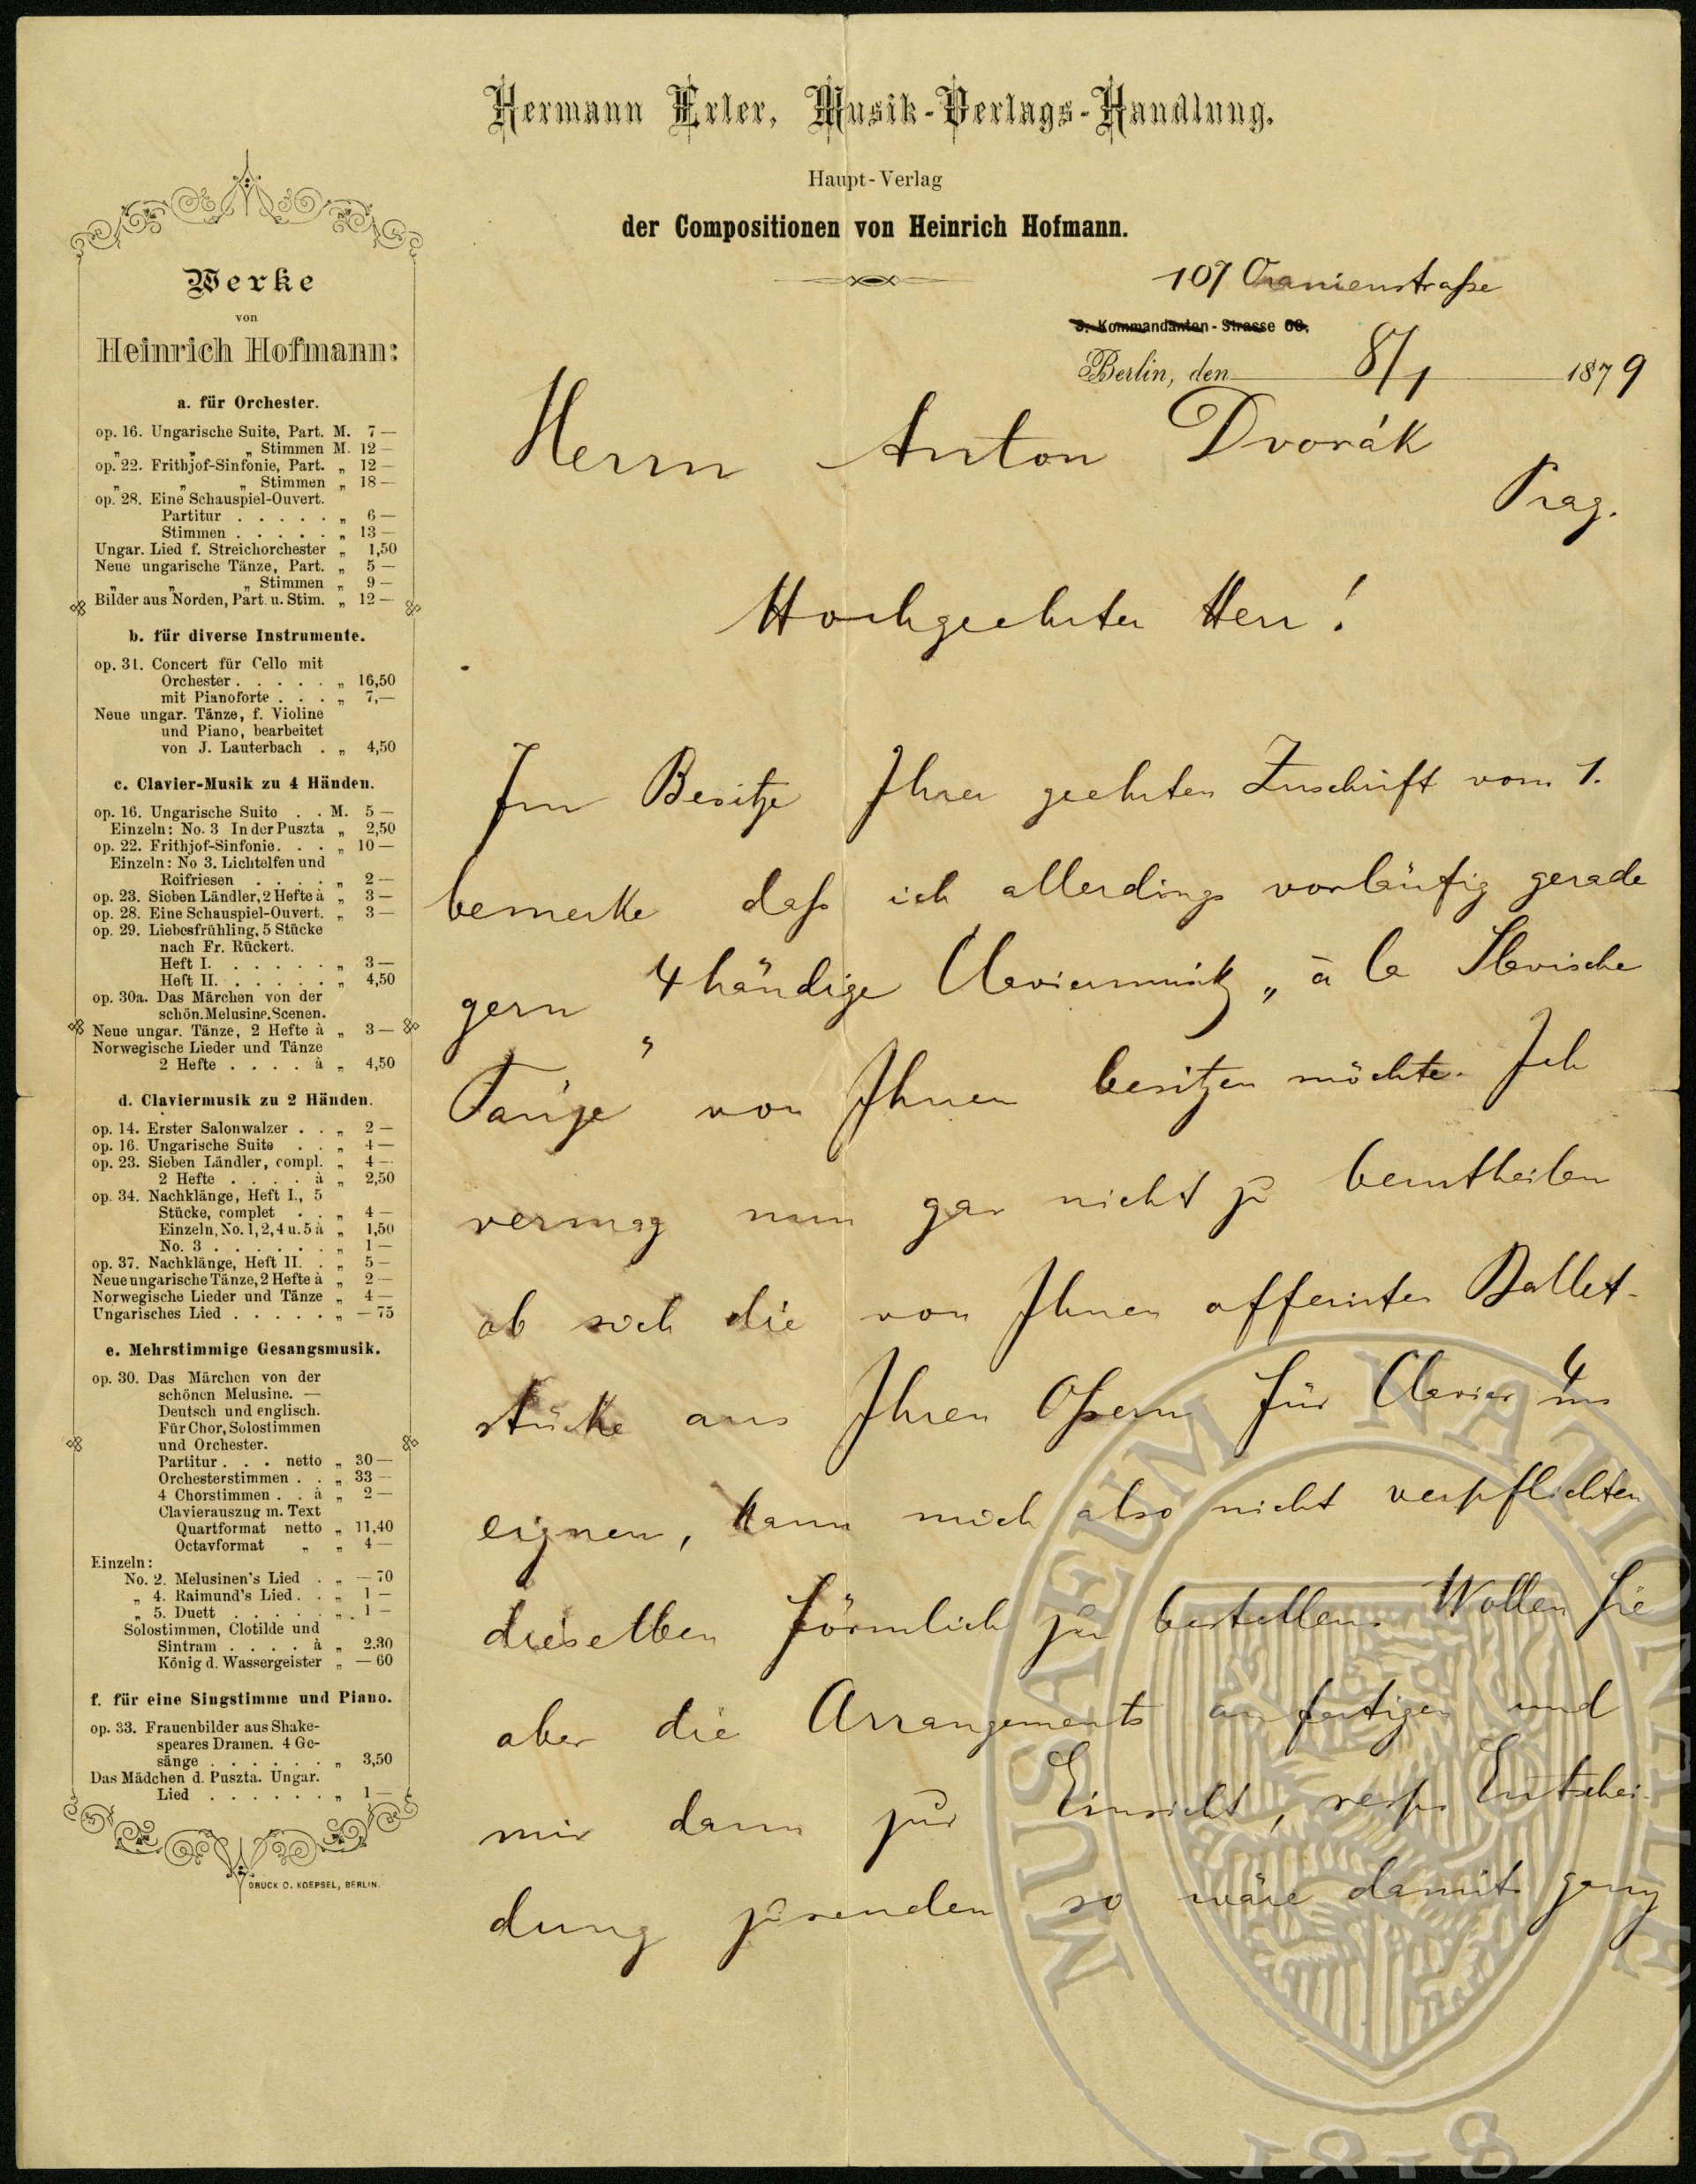 Hermann Erler, Musik-Verlags-Handlung.
Haupt-Verlag
der Compositionen von Heinrich Hofmann.
107 Oranienstraße
S. Kommandanten-Strasse 60.
Berlin, den 8/1 1879
Werke
von
Heinrich Hofmann:
a. für Orchester.
op. 16. Ungarische Suite, Part. M. 7 —
„ „ „ Stimmen M. 12 —
op. 22. Frithjof-Sinfonie, Part. „ 12 —
„ „ „ Stimmen „ 18 —
op. 28. Eine Schauspiel-Ouvert.
Partitur . . . . . „ 6 —
Stimmen . . . . . „ 13 —
Ungar. Lied f. Streichorchester „ 1,50
Neue ungarische Tänze, Part. „ 5 —
„ „ „ Stimmen „ 9 —
Bilder aus Norden, Part. u. Stim. „ 12 —
b. für diverse Instrumente.
op. 31. Concert für Cello mit
Orchester . . . . . „ 16,50
mit Pianoforte . . . „ 7,—
Neue ungar. Tänze, f. Violine
und Piano, bearbeitet
von J. Lauterbach . „ 4,50
c. Clavier-Musik zu 4 Händen.
op. 16. Ungarische Suite . . M. 5 —
Einzeln: No. 3 In der Puszta „ 2,50
op. 22. Frithjof-Sinfonie . . . „ 10 —
Einzeln: No 3. Lichtelfen und
Reifriesen . . . . „ 2 —
op. 23. Sieben Ländler, 2 Hefte à „ 3 —
op. 28. Eine Schauspiel-Ouvert. „ 3 —
op. 29. Liebesfrühling, 5 Stücke
nach Fr. Rückert.
Heft I. . . . . . „ 3 —
Heft II. . . . . . „ 4,50
op. 30a. Das Märchen von der
schön. Melusine. Scenen.
Neue ungar. Tänze, 2 Hefte à „ 3 —
Norwegische Lieder und Tänze
2 Hefte . . . . à „ 4,50
d. Claviermusik zu 2 Händen.
op. 14. Erster Salonwalzer . . „ 2 —
op. 16. Ungarische Suite . . „ 4 —
op. 23. Sieben Ländler, compl. „ 4 —
2 Hefte . . . . à „ 2,50
op. 34. Nachklänge, Heft I., 5
Stücke, complet . . „ 4 —
Einzeln, No. 1, 2, 4 u. 5 à „ 1,50
No. 3 . . . . . . „ 1 —
op. 37. Nachklänge, Heft II. . „ 5 —
Neue ungarische Tänze, 2 Hefte à „ 2 —
Norwegische Lieder und Tänze „ 4 —
Ungarisches Lied . . . . . „ — 75
e. Mehrstimmige Gesangsmusik.
op. 30. Das Märchen von der
schönen Melusine. —
Deutsch und englisch.
Für Chor, Solostimmen
und Orchester.
Partitur . . . netto „ 30 —
Orchesterstimmen . . „ 33 —
4 Chorstimmen . . à „ 2 —
Clavierauszug m. Text
Quartformat netto „ 11,40
Octavformat „ „ 4 —
Einzeln:
No. 2. Melusinen's Lied . „ — 70
„ 4. Raimund's Lied . . „ 1 —
„ 5. Duett . . . . . „ 1 —
Solostimmen, Clotilde und
Sintram . . . . à „ 2.30
König d. Wassergeister „ — 60
f. für eine Singstimme und Piano.
op. 33. Frauenbilder aus Shake-
speares Dramen. 4 Ge-
sänge . . . . . . „ 3,50
Das Mädchen d. Puszta. Ungar.
Lied . . . . . . „ 1 —
DRUCK C. KOEPSEL, BERLIN.
Herrn Anton Dvorák
Prag.
Hochgeehrter Herr!
Im Besitze Ihrer geehrten Zuschrift vom 1.
bemerke daß ich allerdings vorläufig gerade
gern 4händige Claviermusik „à la Slavische
Tänze" von Ihnen besitzen möchte. Ich
vermag nun gar nicht zu beurtheilen
ob sich die von Ihnen offerirten Ballet-
stücke aus Ihren Opern für Clavier 4ms
eignen, kann mich also nicht verpflichten
dieselben förmlich zu bestellen. Wollen Sie
aber die Arrangements anfertigen und
mir dann zur Einsicht, resp. Entschei-
dung zusenden so wäre damit ganz
MUSAEUM NATIONALE
1818